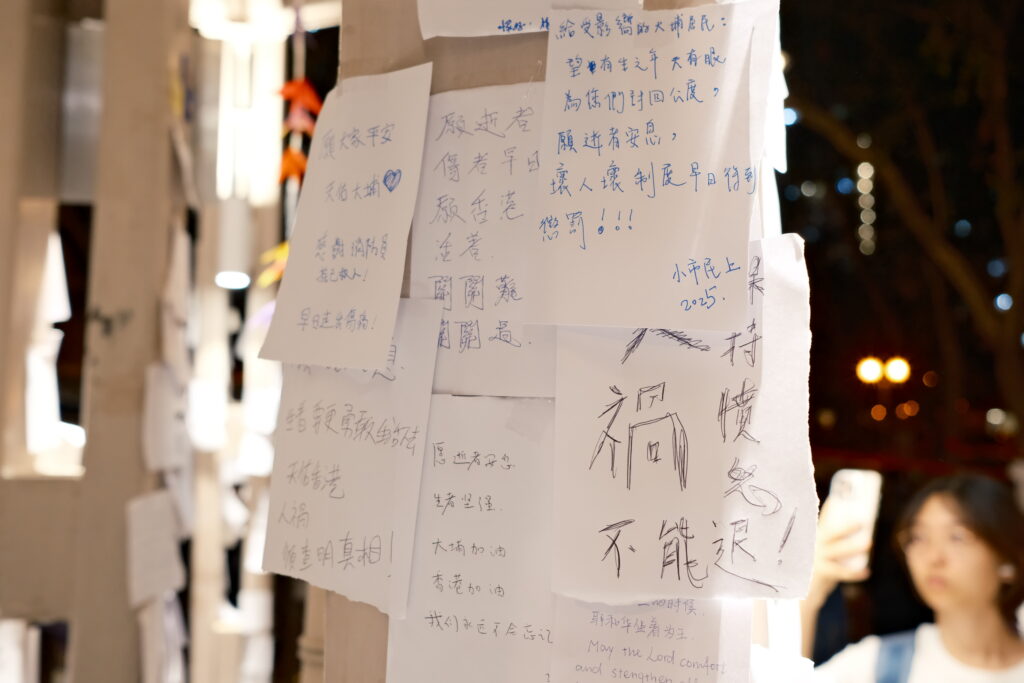 給受影響的大埔居民：
望有生之年 天有眼
為你們討回公度，
願逝者安息，
壞人壞制度早日得到
懲罰！！！
小市民上
2025.
願大家平安
天佑大埔
感謝消防員
捨己救人！
早日走出傷痛！
願逝者
傷者早日
願香港
活着.
關關難
關關過.
息.
生者要更勇敢生活下去
天佑香港
人禍
須查明真相！
愿逝者安息
生者坚强.
大埔加油
香港加油
我们永远不会忘记
人
禍
不能退！
持
憤
怒
的時候
耶和华
May the Lord comfort
and stengthen